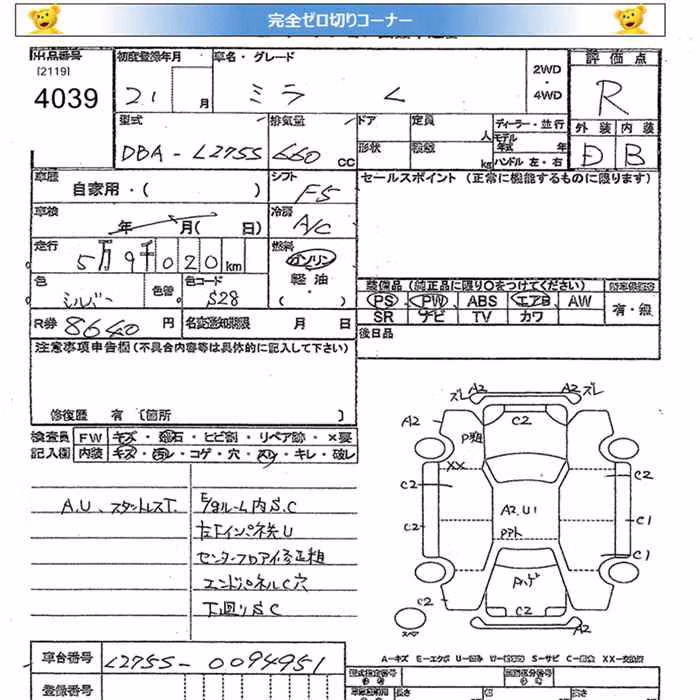 完全ゼロ切りコーナー
出品番号 初度登録年月 車名・グレード 2WD・4WD 評価点
[2119]
4039 21 月 ミラ L R
型式 排気量 ドア 定員 人 ディーラー・並行 外装 内装
DBA-L275S 660 cc 形状 kg モデル年式 年 ハンドル 左・右 D B
車歴 自家用・( ) シフト F5 セールスポイント(正常に機能するものに限ります)
車検 年 月( 日) 冷房 A/C
走行 5万9千020km 燃料 ガソリン
軽油
・( )
色 シルバー 色替 色コード S28
装備品(純正品に限り○をつけてください)
PS PW ABS エアB AW 有・無
SR ナビ TV カワ
R券 8640 円 名変通知期限 月 日 後日品
注意事項申告欄(不具合内容等は具体的に記入して下さい)
修復歴 有 [箇所 ]
検査員 FW キズ・飛石・ヒビ割・リペア跡・×要
記入欄 内装 キズ・汚レ・コゲ・穴・スレ・キレ・破レ
A.U、スタットレスT. E/gルーム内S.C
左Fインパネ先U
センターフロアイ修正粗
エンドパネルC穴
下廻りSC
ズレ A2 A2 ズレ
A2 C2
P粗
XX
C2 C2
A2.U1
C2 C1
PPト
C1
Aハゲ
C2 C2 C2
スペア A2
A-キズ E-エクボ U-凹み S-サビ XX-交換済
車台番号 L275S-0094951
登録番号